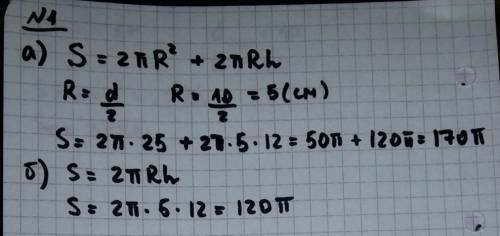 №1
а) S = 2πR² + 2πRh
R = d/2 R = 10/2 = 5(см)
S = 2π · 25 + 2π · 5 · 12 = 50π + 120π = 170π
б) S = 2πRh
S = 2π · 5 · 12 = 120π